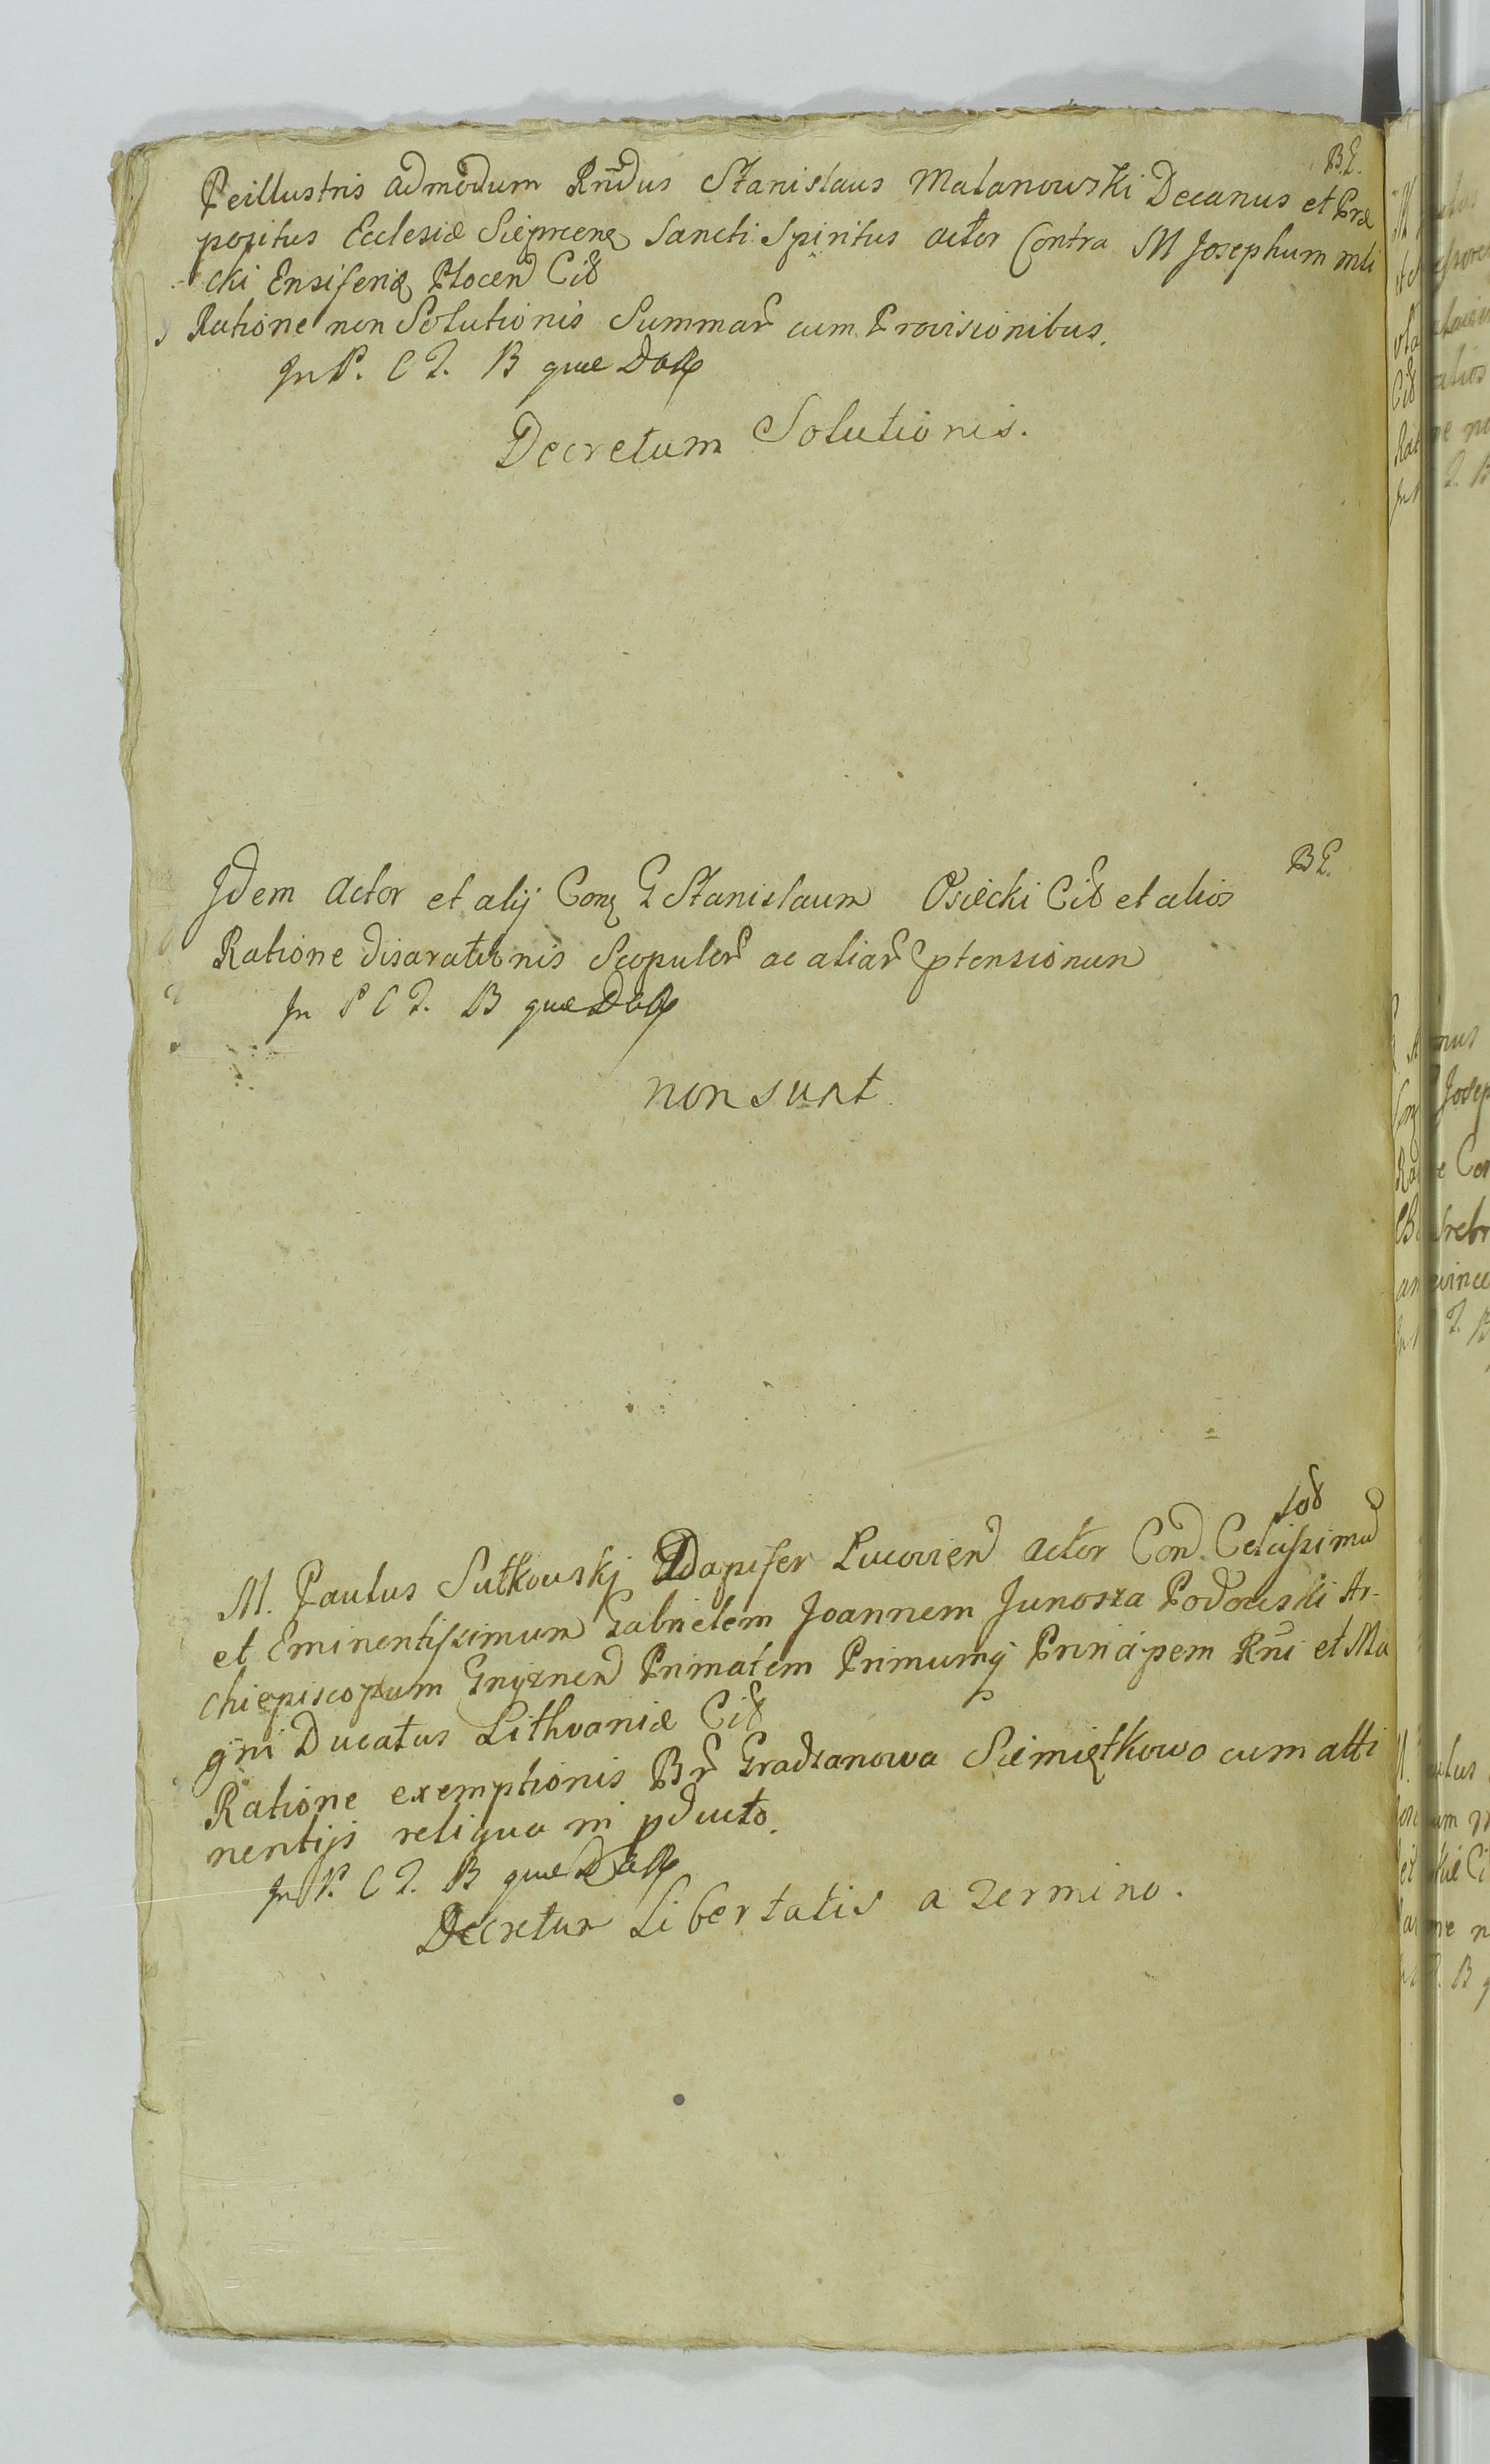 B. E.
Peillustris admodum Rndus Stanislaus Malanowski Decanus et Præ
positus Ecclesiæ Sieprcens Sancti Spiritus actor Contra M Josephum mli
cki Ensiferũ Plocen Cit
Ratione non Solutionis Summar cum Provisionibus.
In P. C T. B quæ
Decretum Solutionis.
B E.
Idem actor et alij Con G Stanislaum Osiecki Cit et alios
Ratione disarationis Scopulor ac aliar ptensionum
In P C T. B quæ
non sunt
M. Paulus Sutkowskj Dapifer Lucovien actor Con Celsissimu
et Eminentissimum Gabrielem Joannem Junosza Podoski Ar-
chiepiscopum Gnyznen Primatem Primumq Principem Rni et Ma
gni Ducatus Lithvaniæ Cit
Ratione exemptionis Br Gradzanowa Siemiątkowo cum atti
nentijs reliqua in pducto.
In P. C T. B quæ
Decretum Libertatis a Termino.